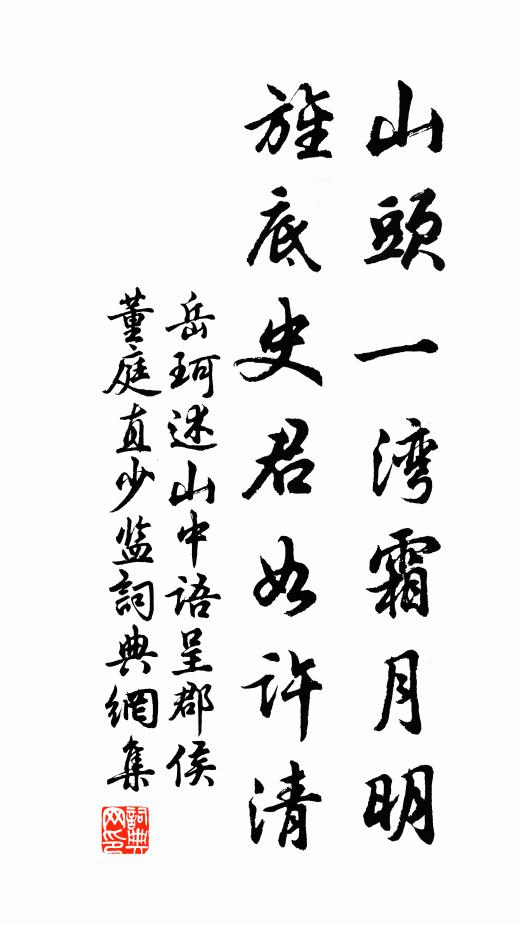 山頭一湾霜月明
旌底史君如許清
岳珂述山中語呈郡侯
董庭直少监詞典網集
詞典网印